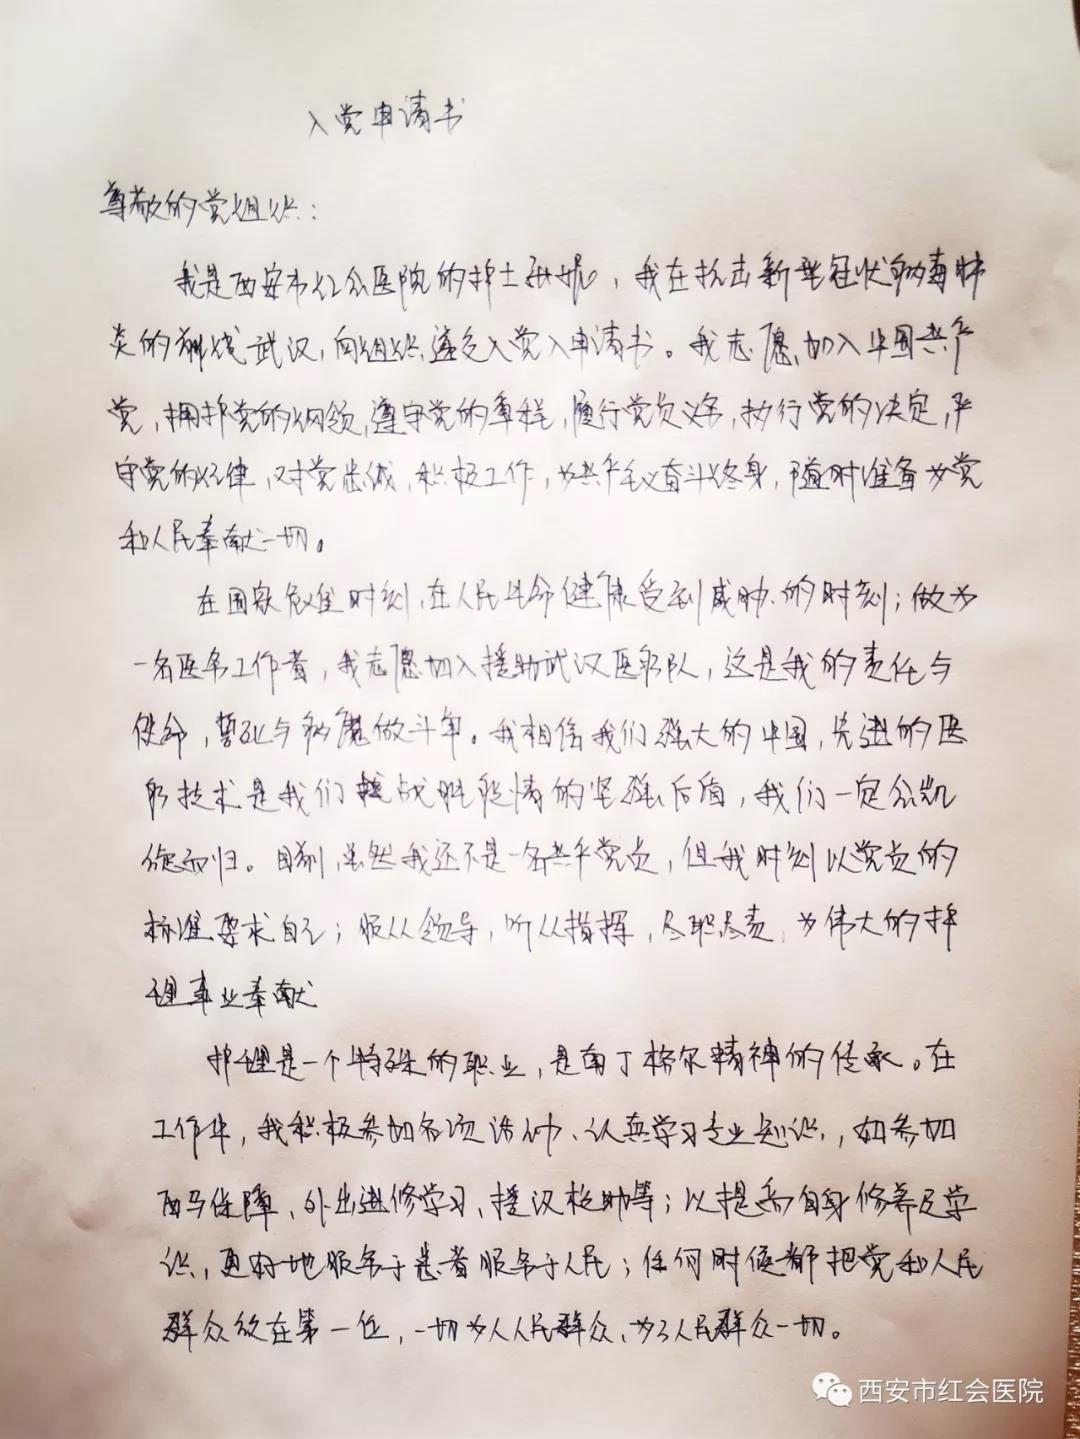 入党申请书
尊敬的党组织：
我是西安市红会医院的护士，我在抗击新型冠状病毒肺
炎的前线武汉，向组织递交入党入申请书。我志愿加入中国共产
党，拥护党的纲领，遵守党的章程，履行党员义务，执行党的决定，严
守党的纪律，对党忠诚，积极工作，为共产主义奋斗终身，随时准备为党
和人民奉献一切。
在国家危难时刻，在人民生命健康受到威胁的时刻；做为
一名医务工作者，我志愿加入援助武汉医疗队，这是我的责任与
使命，誓死与病魔做斗争。我相信我们强大的中国，先进的医
疗技术是我们战胜疫情的坚强后盾，我们一定会凯
旋而归。目前，虽然我还不是一名共产党员，但我时刻以党员的
标准要求自己；服从领导，听从指挥，尽职尽责，为伟大的护
理事业奉献
护理是一个特殊的职业，是南丁格尔精神的传承。在
工作中，我积极参加各项活动、认真学习专业知识，如参加
西马保障、外出进修学习、援汉救助等；以提高自身修养及学
识，更好地服务于患者服务于人民；任何时候都把党和人民
群众放在第一位，一切为人人民群众、为了人民群众一切。
西安市红会医院